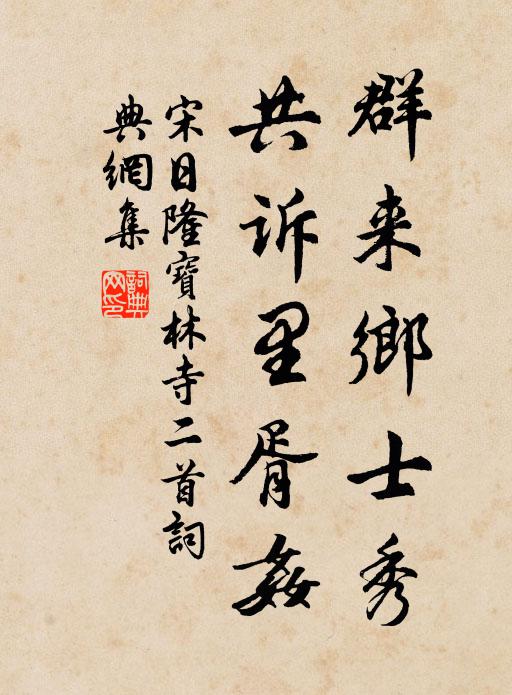 群来鄉士秀
共诉里胥姦
宋日隆寶林寺二首詞
典網集
詞典网印